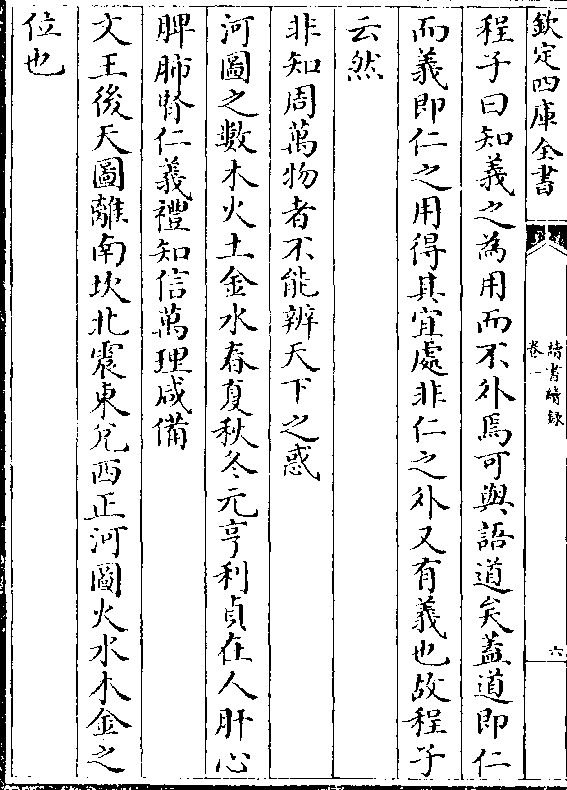 欽定四庫全書
讀書續錄
卷一
六
程子曰知義之為用而不外焉可與語道矣蓋道即仁
而義即仁之用得其宜處非仁之外又有義也故程子
云然
非知周萬物者不能辨天下之惑
河圖之數木火土金水春夏秋冬元亨利貞在人肝心
脾肺腎仁義禮知信萬理咸備
文王後天圖離南坎北震東兌西正河圖火水木金之
位也